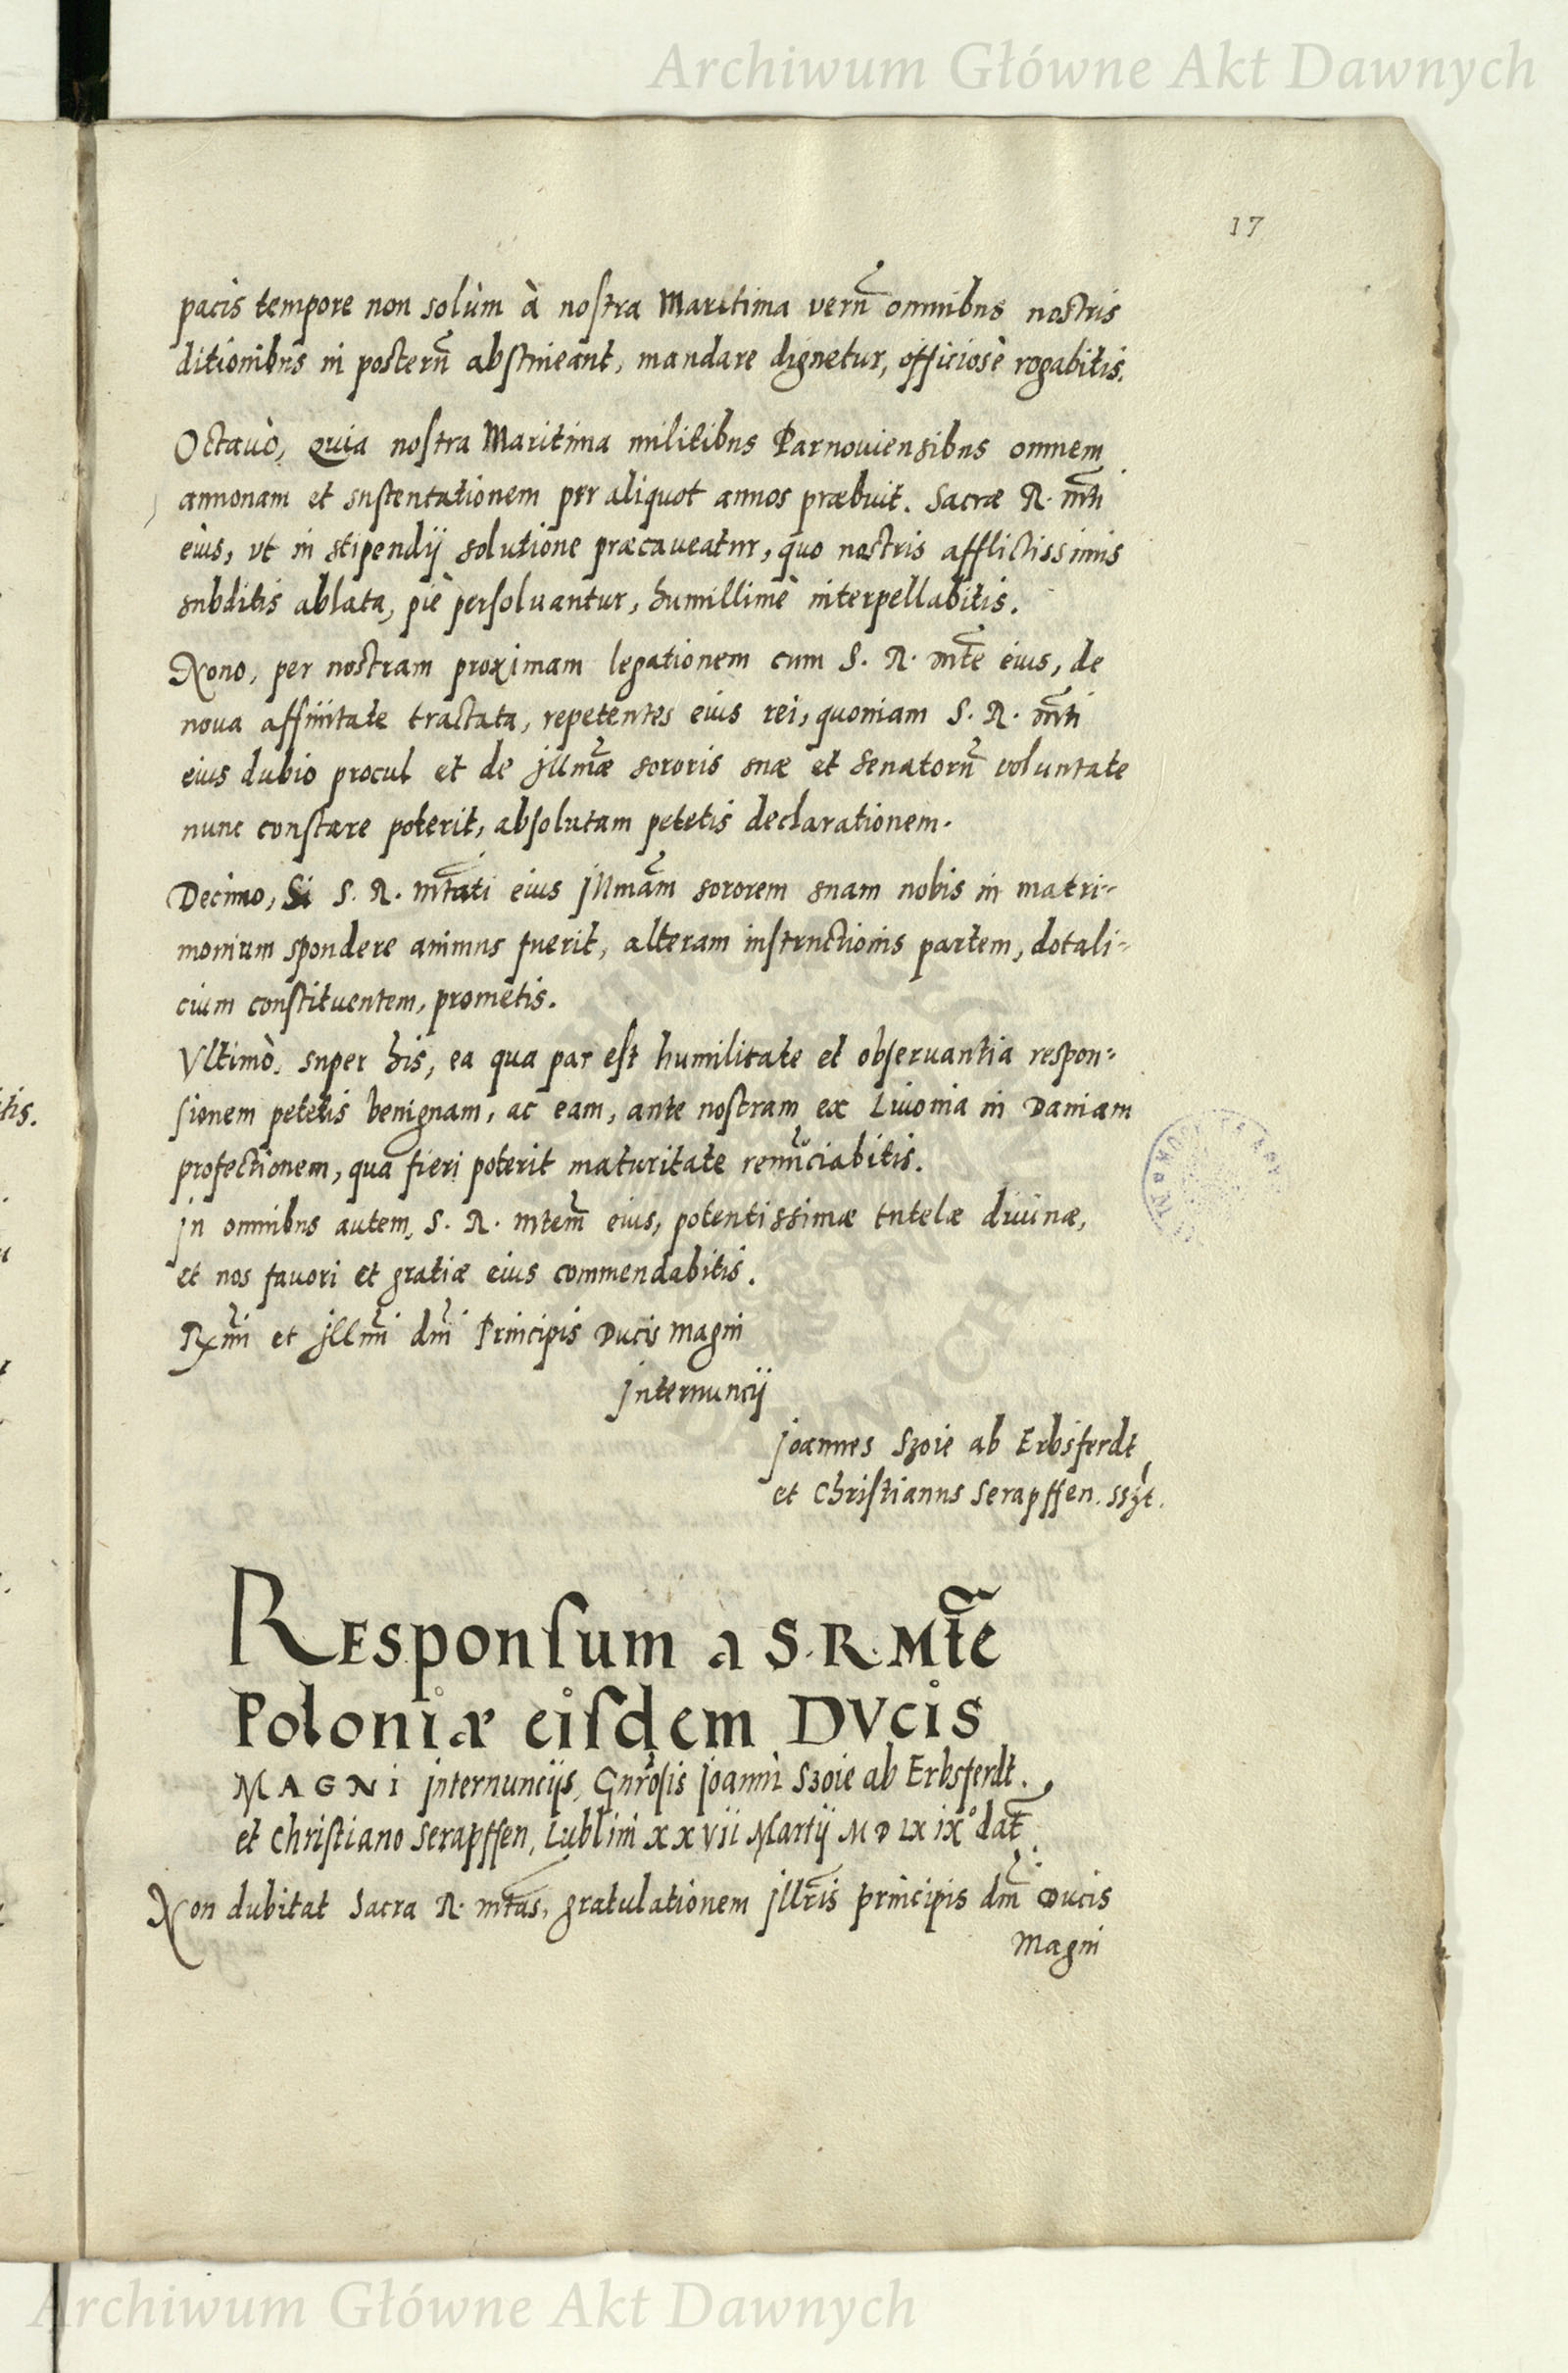 Archiwum Główne Akt Dawnych
17
pacis tempore non solùm à nostra Maritima verũ omnibus nostris
ditionibus in posterũ abstineant, mandare dignetur, officiosè rogabitis.
Octauò, quia nostra Maritima militibus Parnouiensibus omnem
annonam et sustentationem per aliquot annos præbuit. Sacræ R. mti
eius, vt in stipendij solutione præcaueatur, quo nostris afflictissimis
subditis ablata, piè persoluantur, humillimè interpellabitis.
Nono, per nostram proximam legationem cum S. R. mte eius, de
noua affinitate tractata, repetentes eius rei, quoniam S. R. mti
eius dubio procul et de jllmæ sororis suæ et senatorũ voluntate
nunc constare poterit, absolutam petetis declarationem.
Decimo, Si S. R. mtati eius jllmam sororem suam nobis in matri-
monium spondere animus fuerit, alteram instructionis partem, dotali-
cium constituentem, prometis.
Vltimò, super his, ea qua par est humilitate et obseruantia respon-
sionem petetis benignam, ac eam, ante nostram ex Liuonia in Daniam
profectionem, qua fieri poterit maturitate renũciabitis.
jn omnibus autem, S. R. mtem eius, potentissimæ tutelæ diuinæ,
et nos fauori et gratiæ eius commendabitis.
Rxmi et jllmi dni Principis Ducis Magni
jnternuncij
joannes Szoie ab Erbsferdt
et Christianus Serapffen. sszt.
Responsum a S. R. Mte
Poloniæ eisdem DVcis
MAGNi jnternuncijs, Gnrosis joanni Szoie ab Erbsferdt.
et Christiano Serapffen, Lublini xxvii Martij M D LX ix° dat.
Non dubitat Sacra R. mtas, gratulationem jllris principis dni Ducis
Magni
Archiwum Główne Akt Dawnych